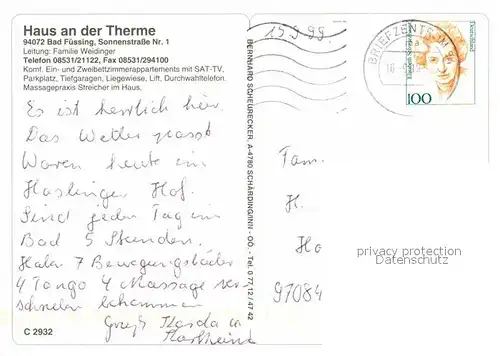 Haus an der Therme
94072 Bad Füssing, Sonnenstraße Nr. 1
Leitung: Familie Weidinger
Telefon 08531/21122, Fax 08531/294100
Komf. Ein- und Zweibettzimmerappartements mit SAT-TV,
Parkplatz, Tiefgaragen, Liegewiese, Lift, Durchwahltelefon.
Massagepraxis Streicher im Haus.
Es ist herrlich hier.
Das Wetter passt
Waren heute im
Haslinger Hof.
Sind jeden Tag im
Bad 5 Stunden.
Haben 7 Bewegungsbäder
4 Fango 4 Massage
bekommen
C 2932
BERNHARD SCHEUERECKER, A-4780 SCHÄRDING/INN - OÖ. - Tel. 0 77 12 / 47 42
15.9.98
BRIEFZENTRUM 94
Deutschland
100
Fam.
H.
Ho
97084
privacy protection
Datenschutz